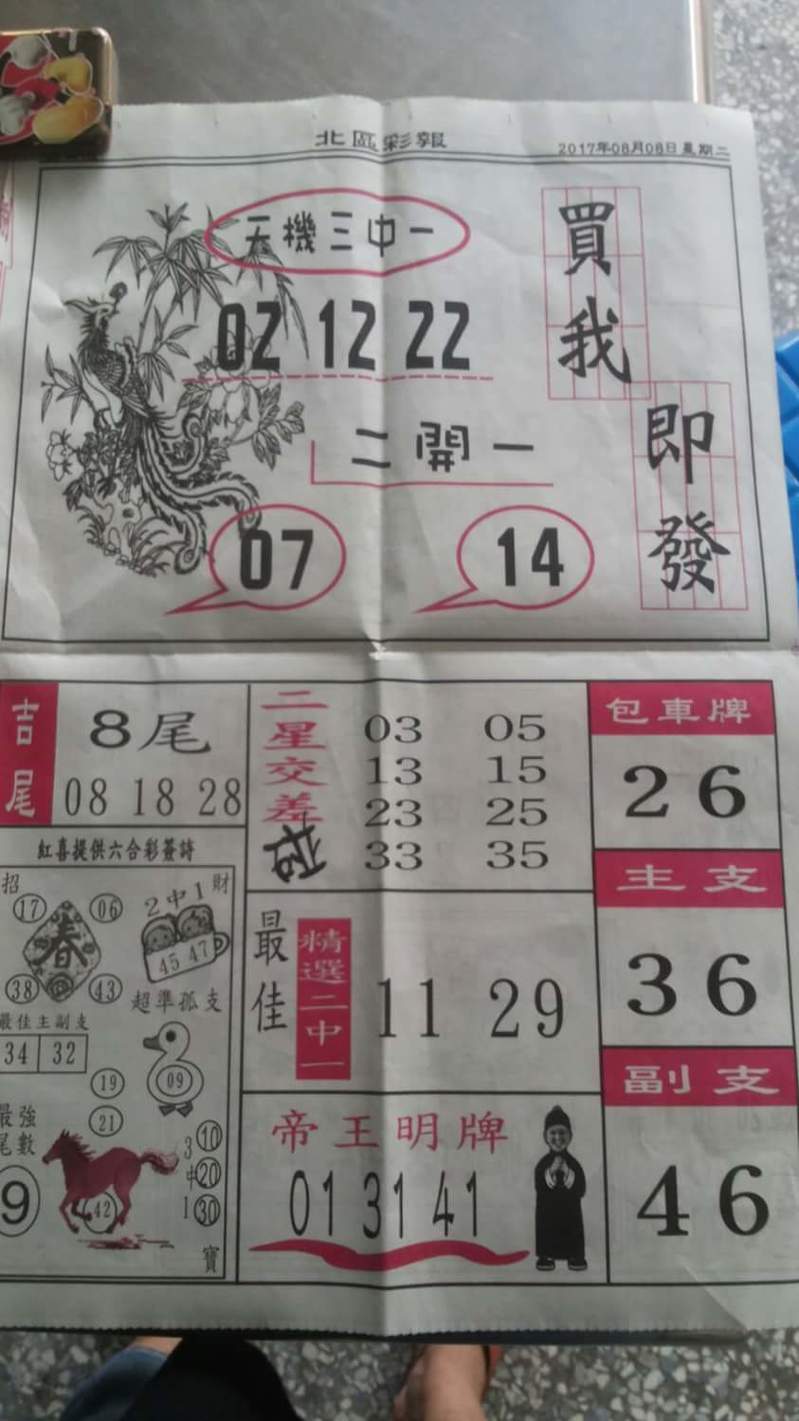 北區彩報
2017年08月08日星期二
天機三中一
02 12 22
買我
即發
二開一
07 14
吉尾
8尾
08 18 28
二星交差
03 05
13 15
23 25
33 35
包車牌
26
主支
36
副支
46
紅喜提供六合彩簽詩
招 財
17 06
春
38 43
2中1
45 47
超準孤支
09
最佳主副支
34 32
19
21
最強尾數
9
42
3中1
10
20
30
寶
最佳
精選二中一
11 29
帝王明牌
01 31 41